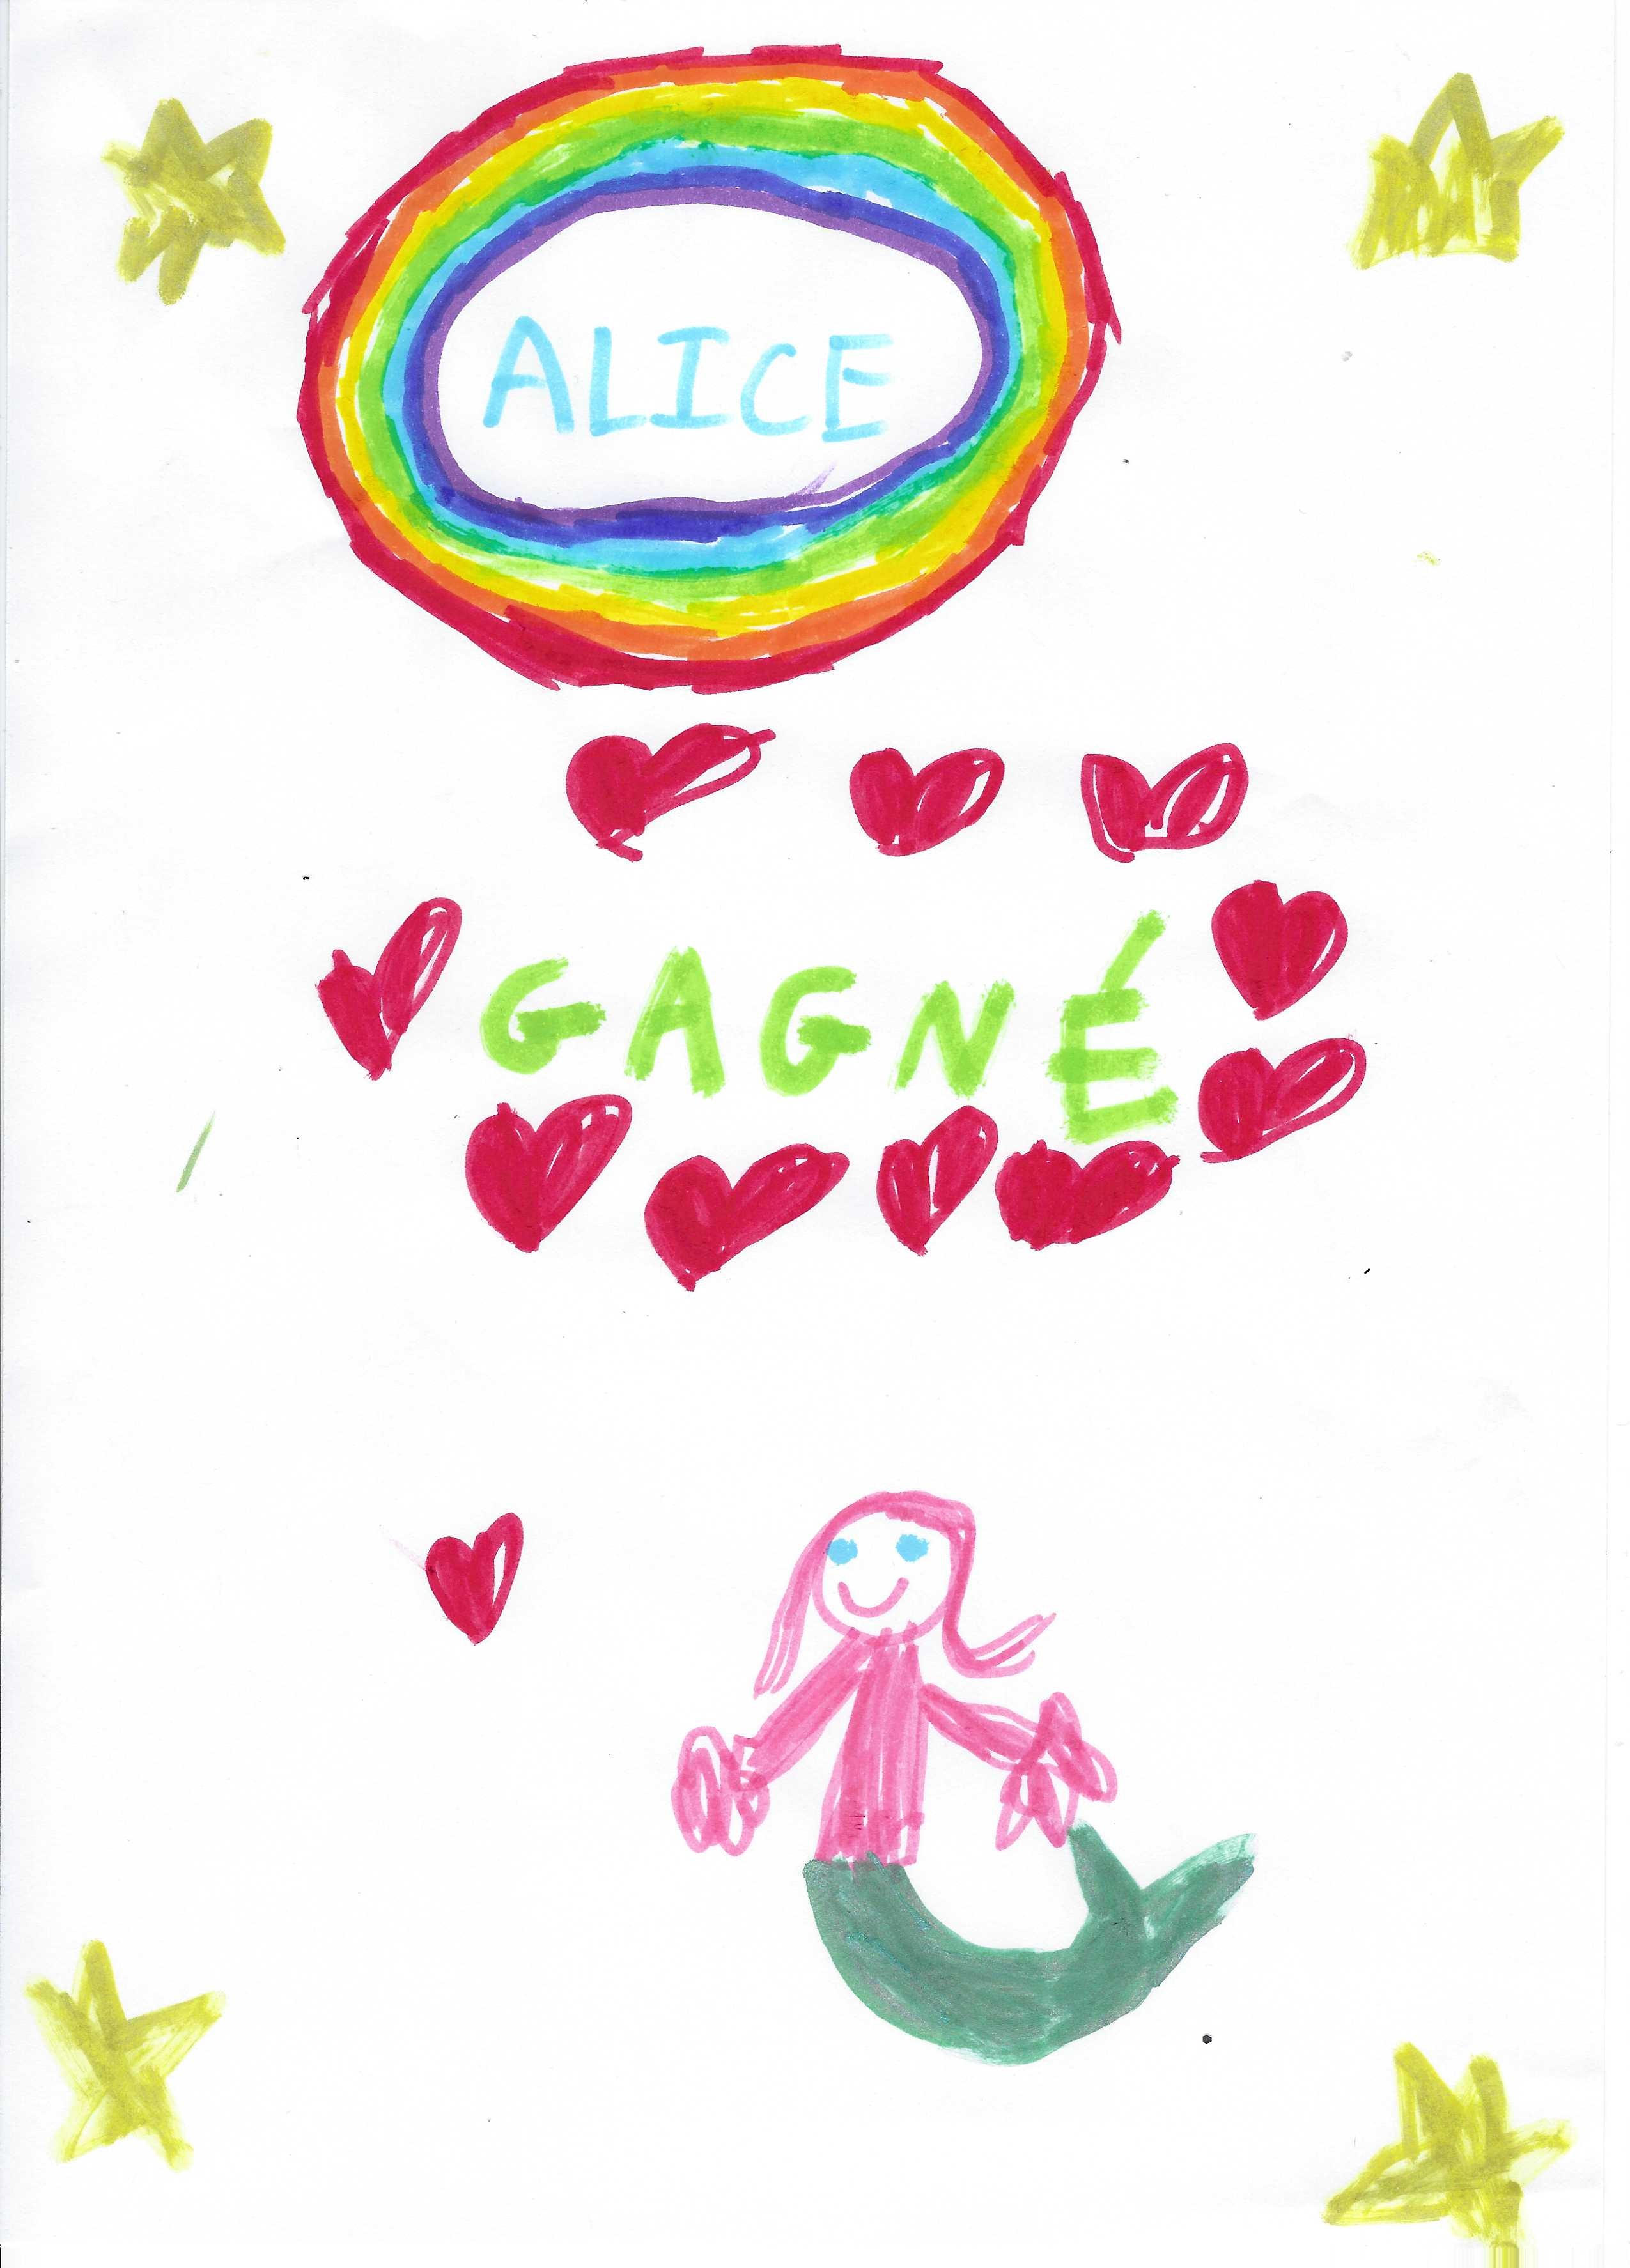 ALICE
GAGNÉ